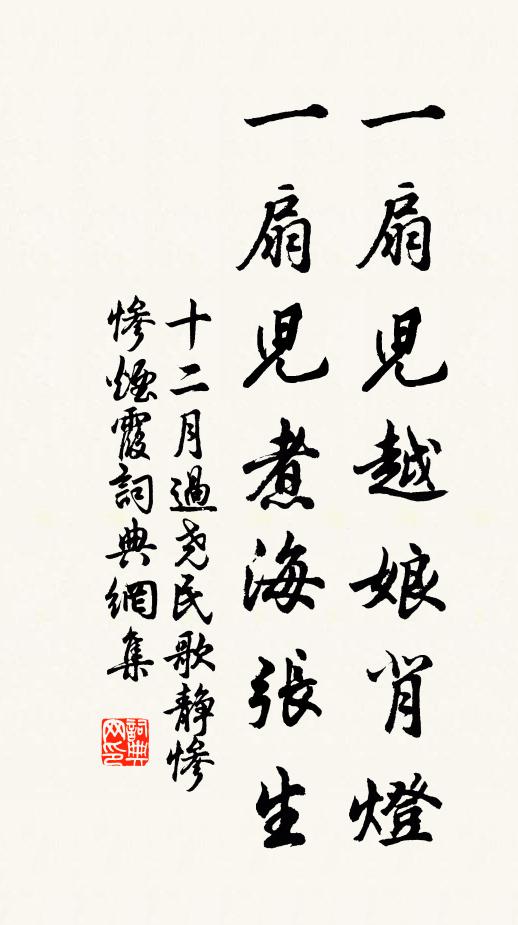 一扇兒越娘背燈
一扇兒煮海張生
十二月過尧民歌靜慘
慘煙霞詞典網集
詞典
网印